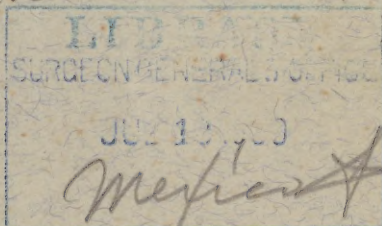 LIBRARY
SURGEON GENERAL'S OFFICE
JUL
Mexico